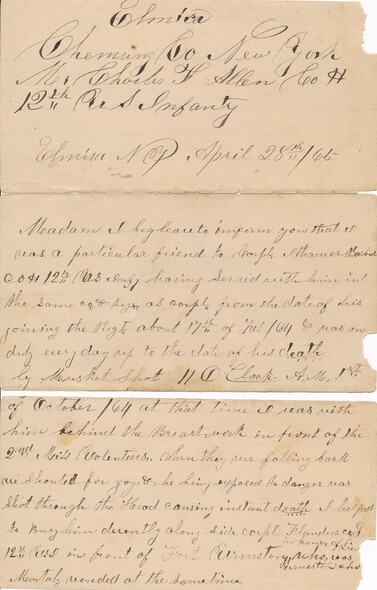 Elmira
Chemung Co New York
Mr Charles F Allen Co H
12th U S Infanty
Elmira N Y April 28th /65
Madam I beg leave to imform you that I
was a particular friend to Corpl
Co H 12th U.S Infty having served with him in
the same Co & Regt as corpl from the date of his
joining the Regt about 17th of Jul /64 & was on
duty every day up to the date of his death
by Musket Shot 11 O Clock A.M. 1st
of October /64 at that time I was with
him behind the Breastwork in front of the
2nd Volenteers. when they wer falling back
we Should for & he being exposed to danger was
Shot through the Head causing instant death I helped
to bury him decently along Side corpl Flanders
in honor of
12th U.S in front of Fort who was
Mortaly wonded at the same time